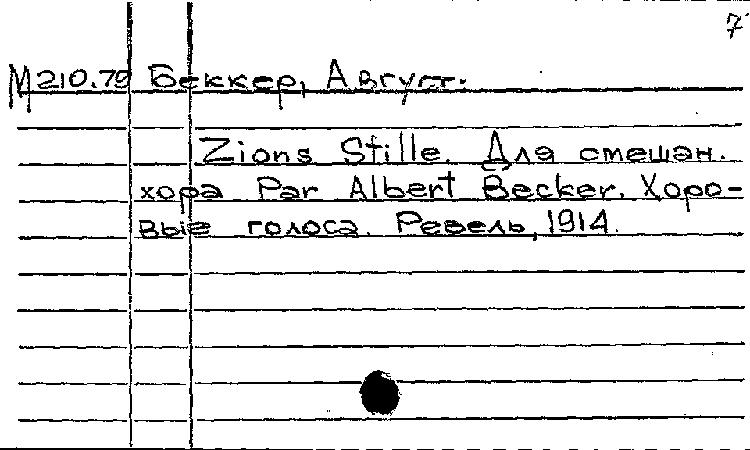 7
М210.79 Беккер, Август.
Zions Stille. Для смешан.
хора Par Albert Becker. Хоро-
вые голоса. Ревель, 1914.